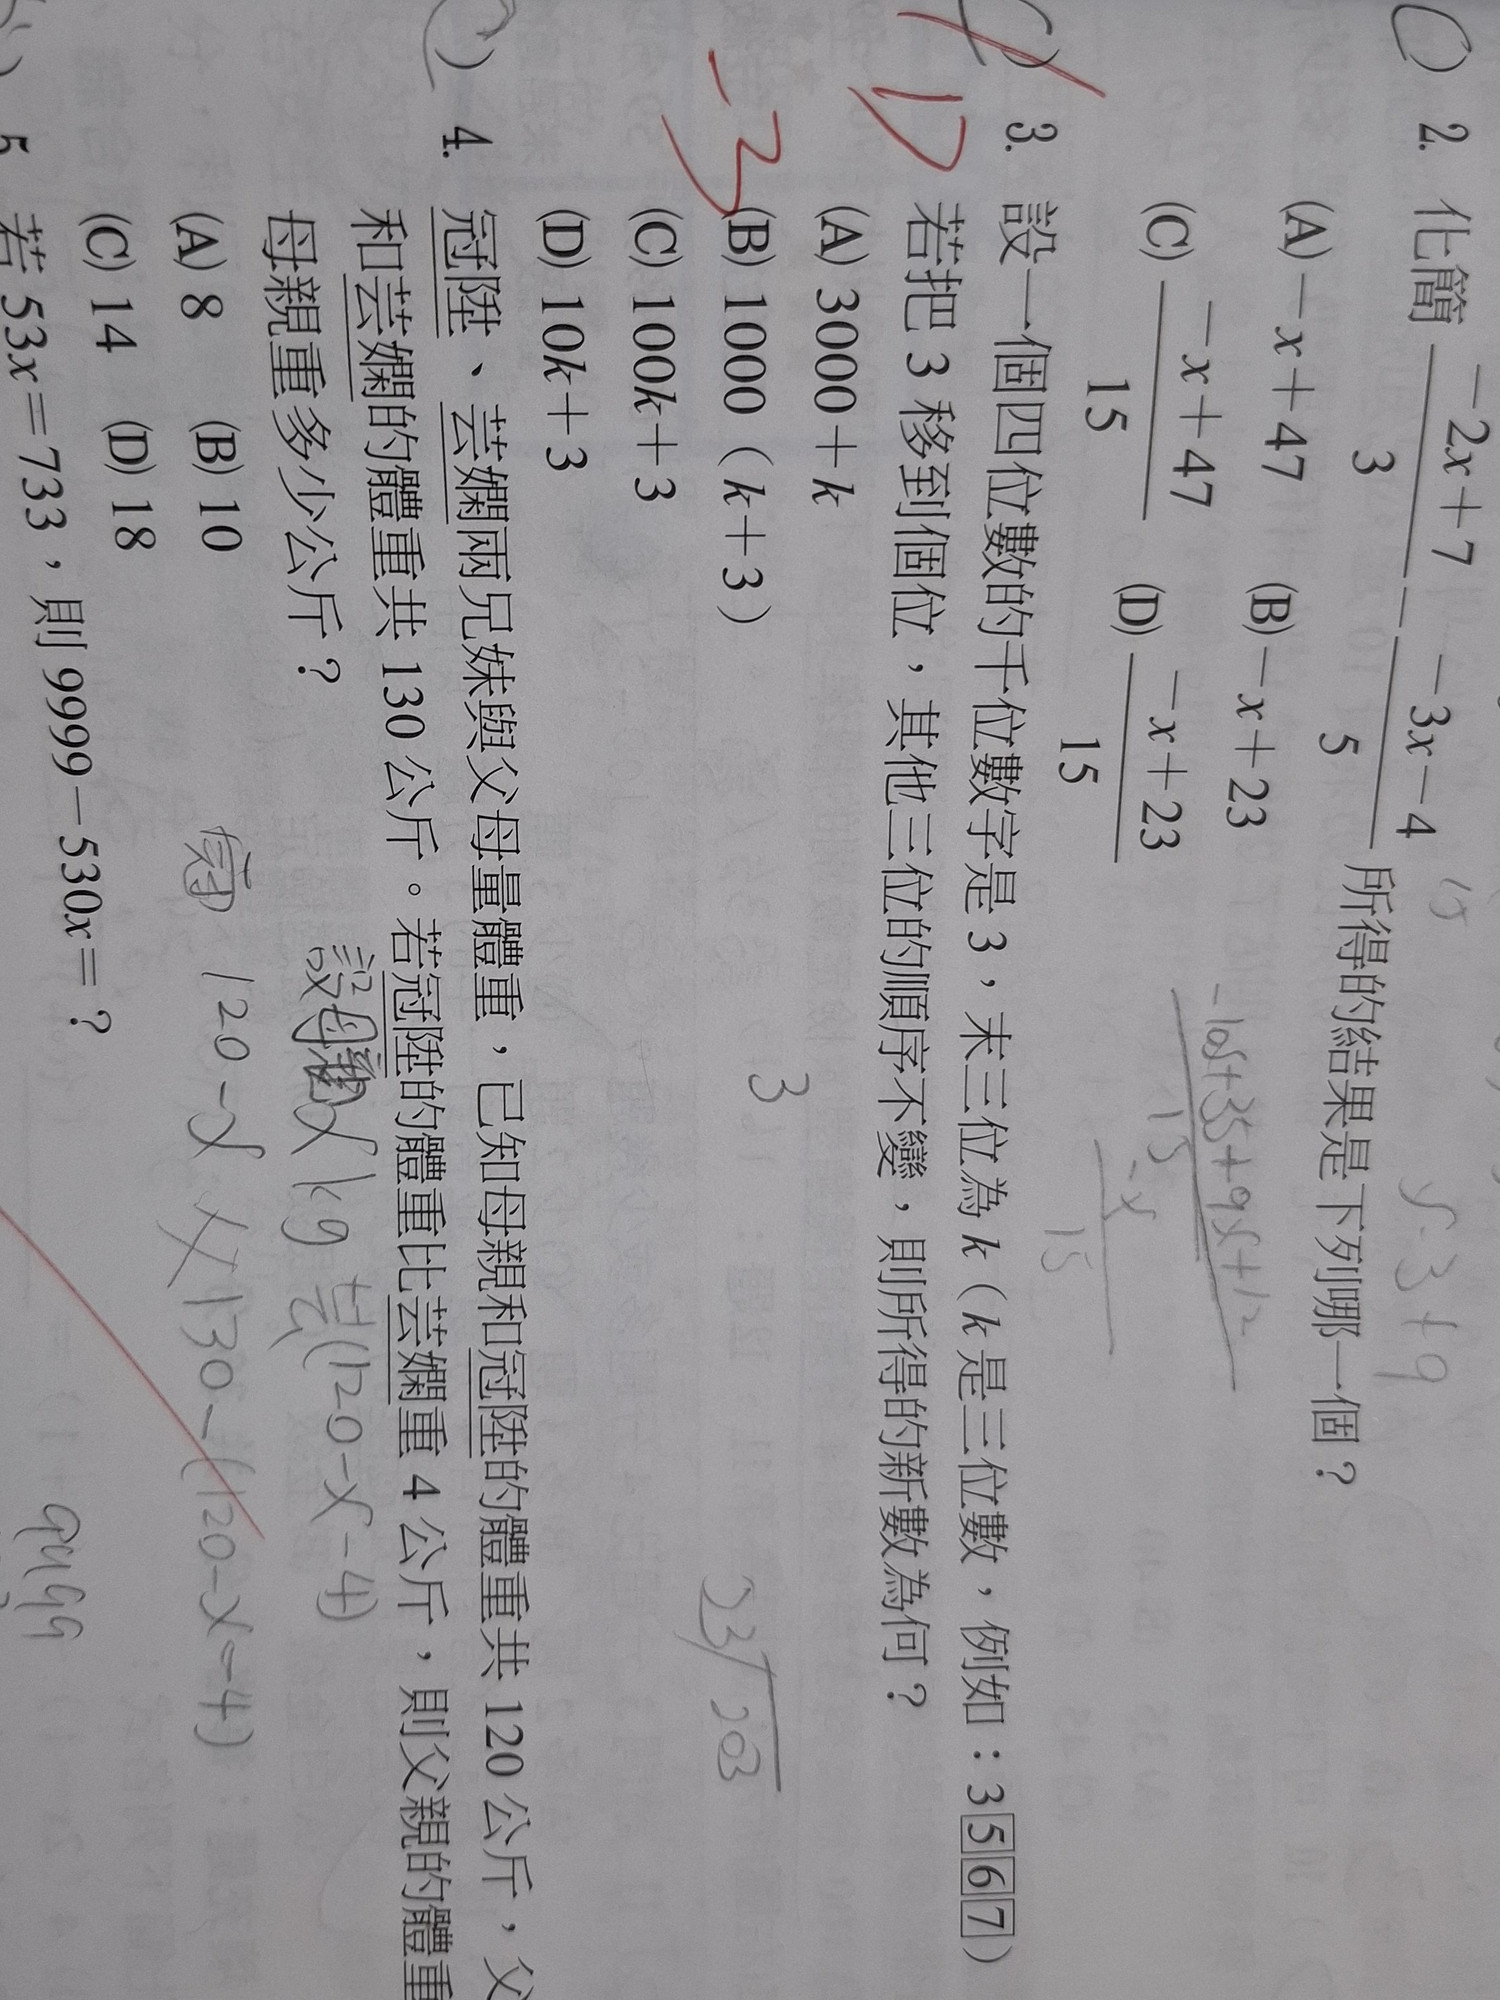 C ) 2. 化簡 −2x+7/3 − −3x−4/5 所得的結果是下列哪一個？
(A) −x+47 (B) −x+23
(C) −x+47/15 (D) −x+23/15
−10x+35+9x+12
15
−x
15
) 3. 設一個四位數的千位數字是 3，末三位為 k（k 是三位數，例如：3567）
D
若把 3 移到個位，其他三位的順序不變，則所得的新數為何？
(A) 3000+k
−3
(B) 1000（k+3）
3
(C) 100k+3
(D) 10k+3
C ) 4. 冠陞、芸嫻兩兄妹與父母量體重，已知母親和冠陞的體重共 120 公斤，父
和芸嫻的體重共 130 公斤。若冠陞的體重比芸嫻重 4 公斤，則父親的體重
母親重多少公斤？
設母親x kg 芸(120−x−4)
(A) 8 (B) 10
冠 120−x 父130−(120−x−4)
(C) 14 (D) 18
) 5 若 53x=733，則 9999−530x=？